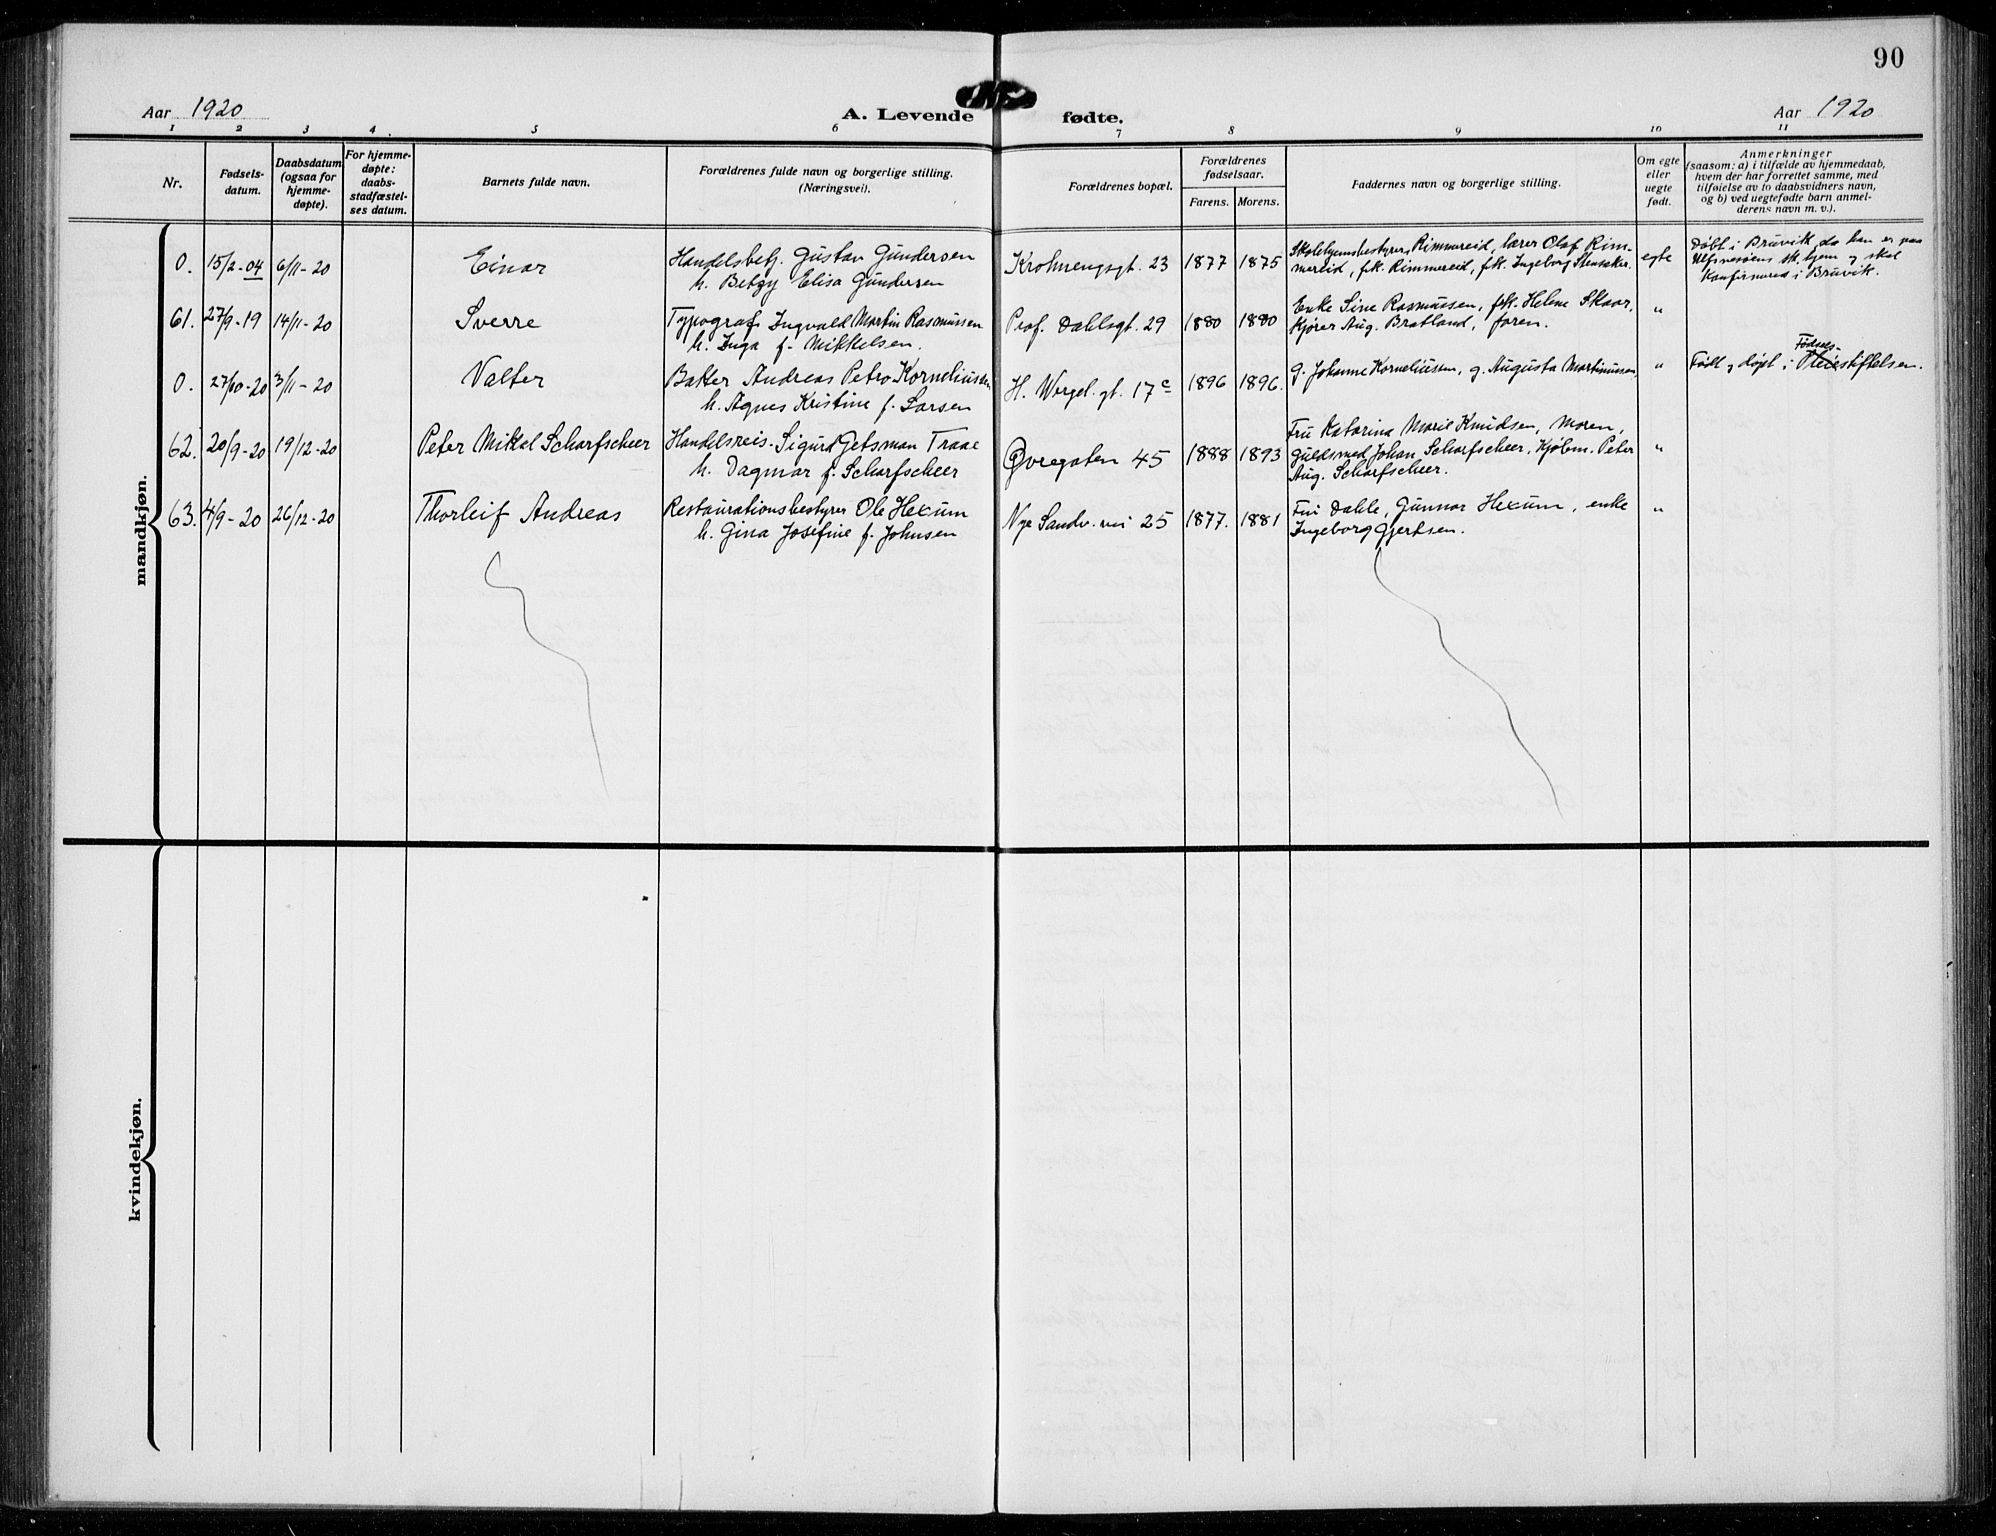 90
Aar 1920
A. Levende fødte.
Aar 1920
1 2 3 4. 5 6 7 8 9 10 11
Nr.
Fødsels-
datum.
Daabsdatum
(ogsaa for
hjemme-
døpte).
For hjemme-
døpte:
daabs-
stadfæstel-
ses datum.
Barnets fulde navn.
Forældrenes fulde navn og borgerlige stilling.
(Næringsvei).
Forældrenes bopæl.
Forældrenes
fødselsaar.
Farens. Morens.
Faddernes navn og borgerlige stilling.
Om egte
eller
uegte
født.
Anmerkninger
(saasom: a) i tilfælde av hjemmedaab,
hvem der har forrettet samme, med
tilføielse av to daabsvidners navn,
og b) ved uegtefødte barn anmel-
derens navn m. v.).
mandkjøn.
0. 15/2-04 6/11-20
Einar
Handelsbetj. Gustav Gundersen
h. Betzy Elisa Gundersen
Krohnengsgt. 23 1877 1875
Skolehjemsbestyrer Rimmereid, lærer Olaf Rim-
mereid, frk. Rimmereid, frk. Ingeborg Stensaker.
egte
Døbt i Bruvik, da han er paa
Ulfsnesøens sk. hjem og skal
konfirmered i Bruvik.
61. 27/9-19 14/11-20
Sverre
Typograf Ingvald Martin Rasmussen
h. Inga f. Mikkelsen.
Prof. Dahlsgt. 29 1880 1880
Enke Sine Rasmussen, frk. Helene Skaar,
Kjører Aug. Bratland, faren.
"
0. 27/10-20 3/11-20
Valter
Bakter Andreas Petro Korneliussen
h. Agnes Kristine f. Larsen
H. Wergel. gt. 17c 1896 1896.
g. Johanne Korneliussen, g. Augusta Martinussen,
"
Født og døpt i Fødselsstiftelsen.
62. 20/9-20 19/12-20
Peter Mikal Scharfscheer
Handelsreis. Sigurd Jetsman Traae
h. Dagmar f. Scharfscheer
Øvregaten 45 1888 1893
Fru Katarina Marie Knudsen, Moren,
guldsmed Johan Scharfscheer, Kjøbm. Peter
Aug. Scharfscheer.
"
63. 4/9-20 26/12-20
Thorleif Andreas
Restaurationsbestyrer Ole Hexum
h. Gina Josefine f. Johnsen
Nye Sandv. vei 25 1877. 1881
Fru Dahle, Gunnar Hexum, enke
Ingeborg Gjertsen.
"
kvindekjøn.